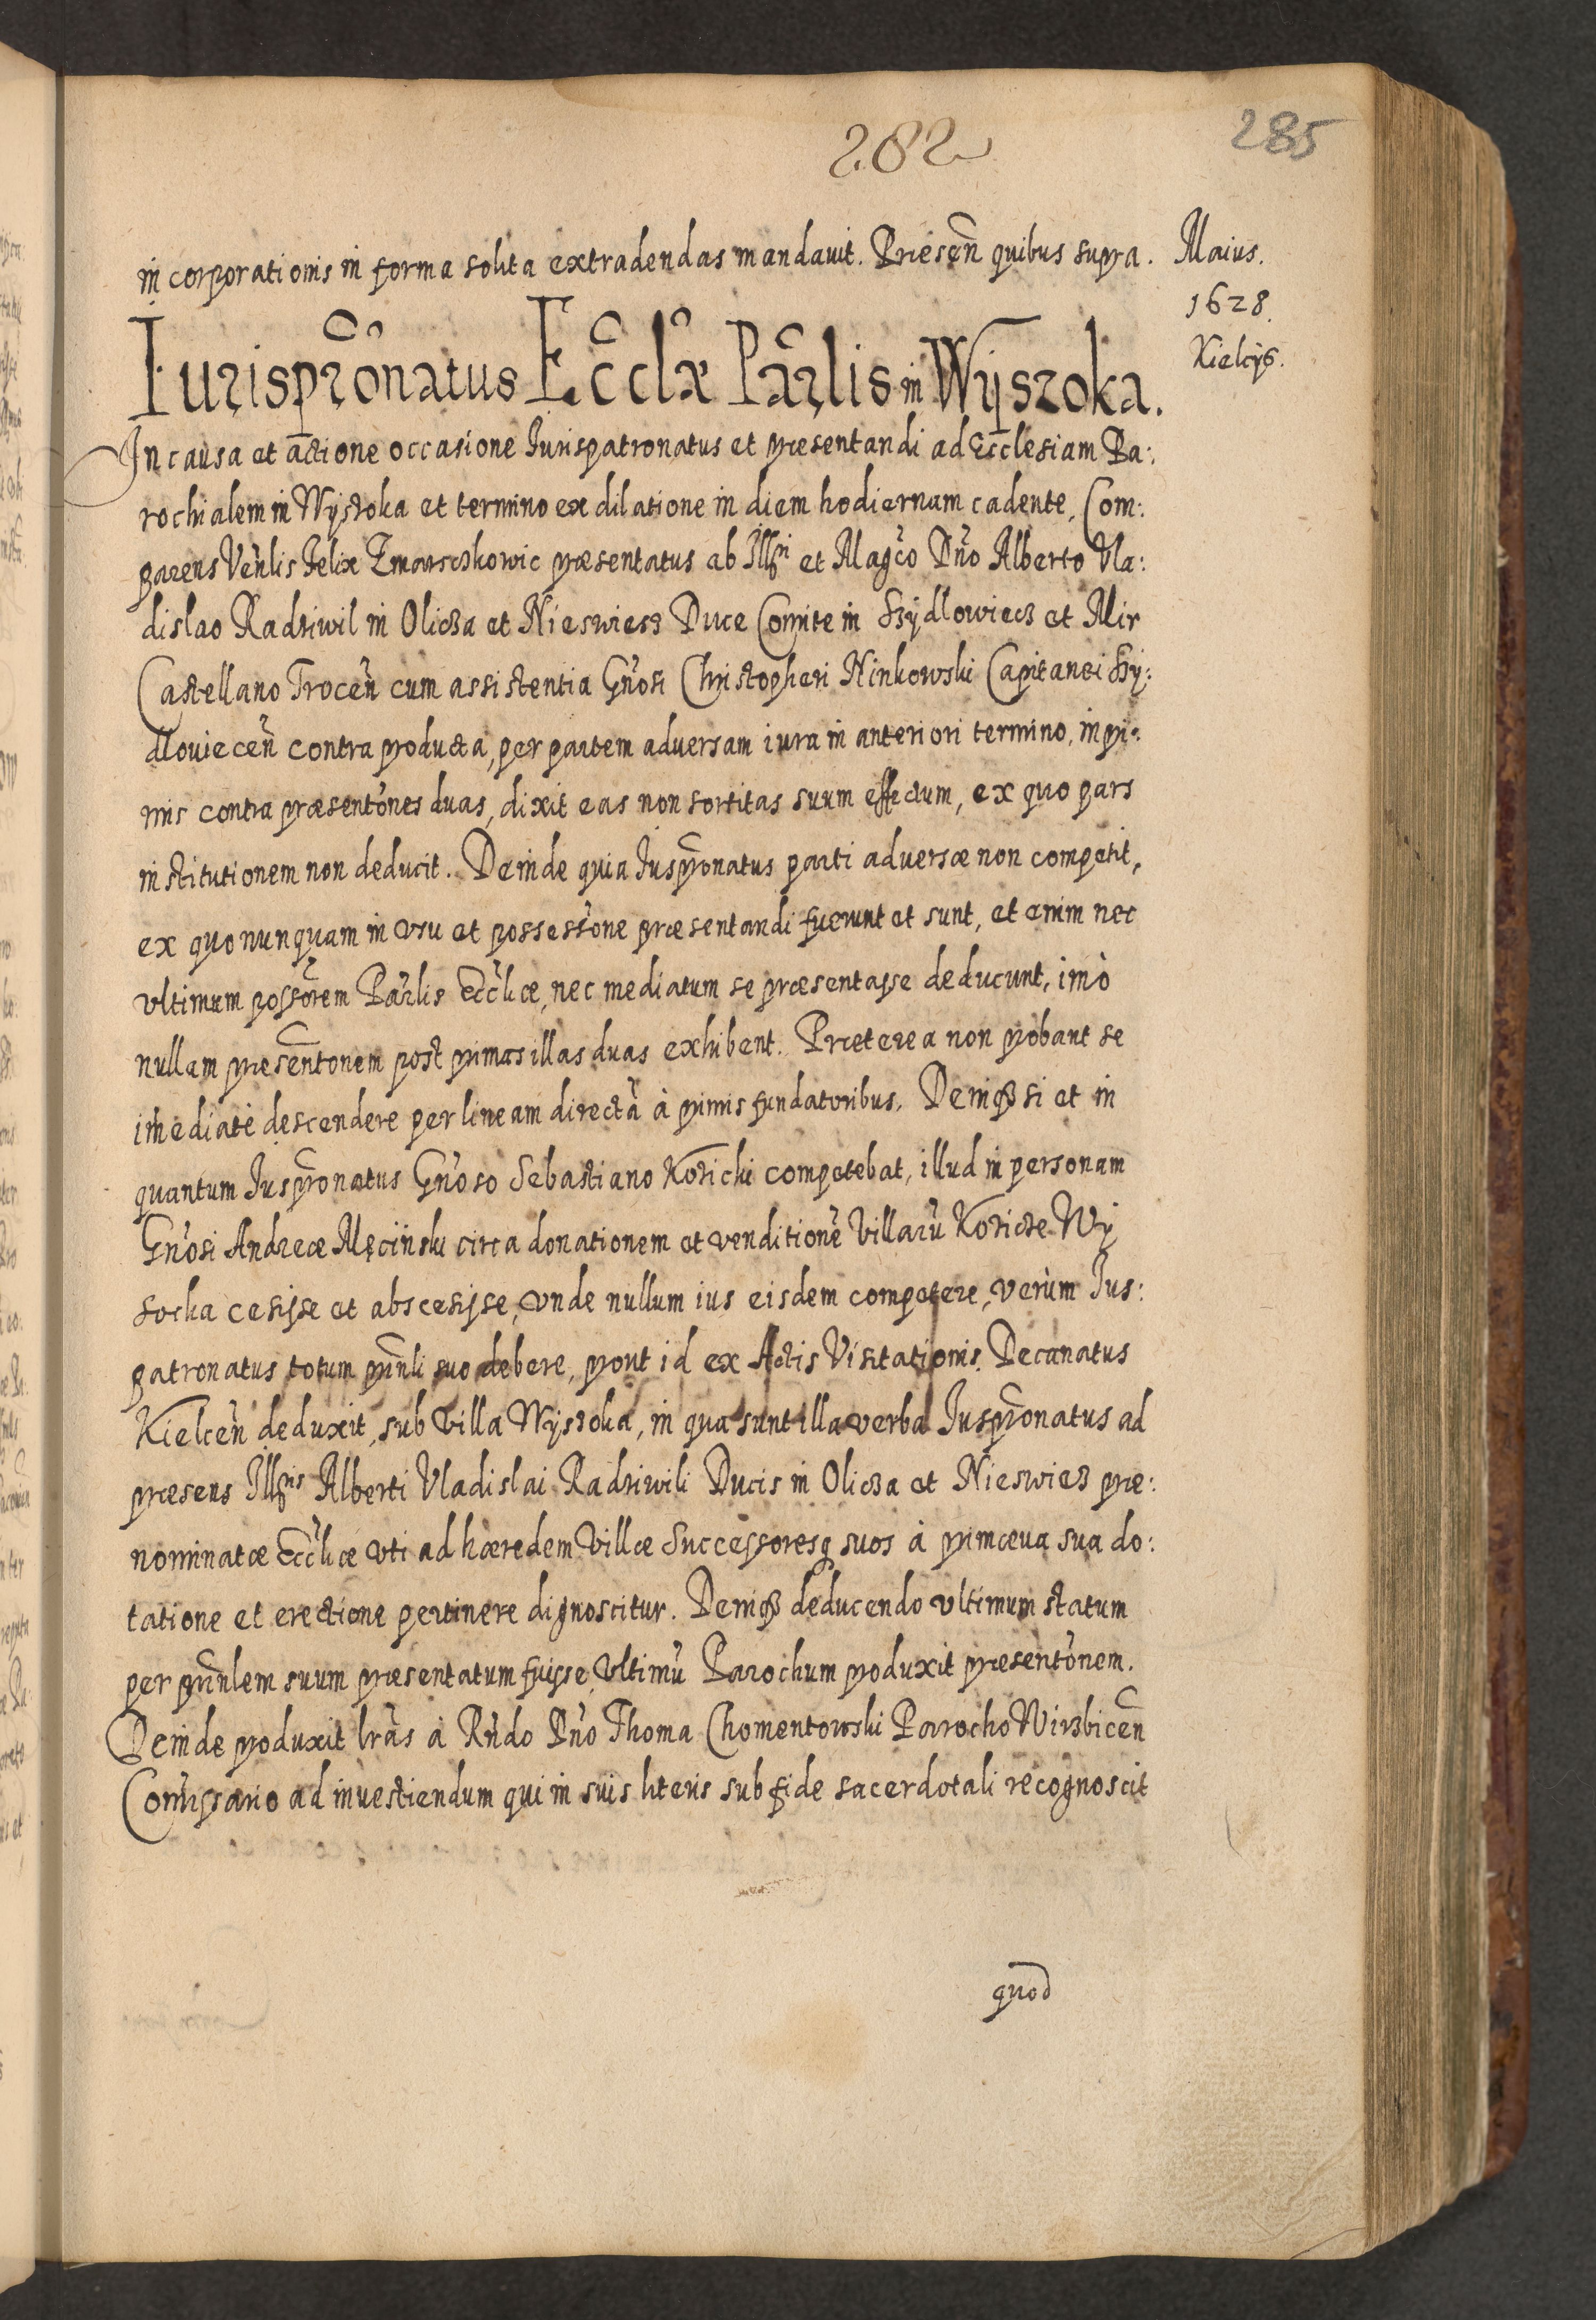 282
285
incorporationis in forma solita extradendas mandauit. Præsen̄ quibus supra.
Maius.
1628.
Kielcijs.
Iurispr̃onatus Ecc̃læ Par̃lis in Wÿszoka.
In causa et actione occasione Iurispatronatus et præsentandi ad Ecclesiam Pa:
rochialem in Wÿszoka et termino ex dilatione in diem hodiernam cadente, Com:
parens Ven̄lis Felix Zmarszkowic præsentatus ab Ill͠ri et Mag̃co Dn̄o Alberto Vla:
dislao Radziwil in Olicza et Nieswiesz Duce Comite in Szÿdlowiecz et Mir
Castellano Trocen̄ cum assistentia Gn̄osi Christopheri Ninkowski Capitanei Szÿ:
dlouiecen̄ contra producta, per partem adversam iura in anteriori termino, inpri:
mis contra præsentōnes duas, dixit eas non sortitas suum effectum, ex quo pars
institutionem non deducit. Deinde quia Iuspr̃onatus parti adversæ non competit,
ex quo nunquam in vsu et possessiōne præsentandi fuerunt et sunt, et enim nec
vltimum possōrem Par̃lis Eccl̃iæ, nec mediatum se præsentasse deducunt, imò
nullam præsentōnem post primas illas duas exhibent. Præterea non probant se
im̄ediatè descendere per lineam directā à primis fundatoribus. Deniq3 si et in
quantum Iuspr̃onatus Gn̄oso Sebastiano Kozichi competebat, illud in personam
Gn̄osi Andreæ Męciński circa donationem et venditionē Villarū Kozicze Wÿ
socka cesisse et abscesisse, vnde nullum ius eisdem competere, verùm Ius:
patronatus totum prin̄li suo debere, prout id ex Actis Visitationis Decanatus
Kielcen̄ deduxit, sub Villa Wÿszoka, in qua sunt illa verba Iuspr̃onatus ad
præsens Ill͠ris Alberti Vladislai Radziwili Ducis in Olicza et Nieswież præ:
nominatæ Eccl̃iæ vti ad hæredem Villæ Successoresq suos à primæua sua do:
tatione et erectione pertinere dignoscitur. Deniq3 deducendo vltimum statum
per prin̄lem suum præsentatum fuisse, vltimū Parochum produxit præsentōnem.
Deinde produxit lr̃as à Rn̄do Dn̄o Thoma Chomentowski Parocho Wirzbicen̄
Com̄issario ad inuestiendum qui in suis literis sub fide sacerdotali recognoscit
quod